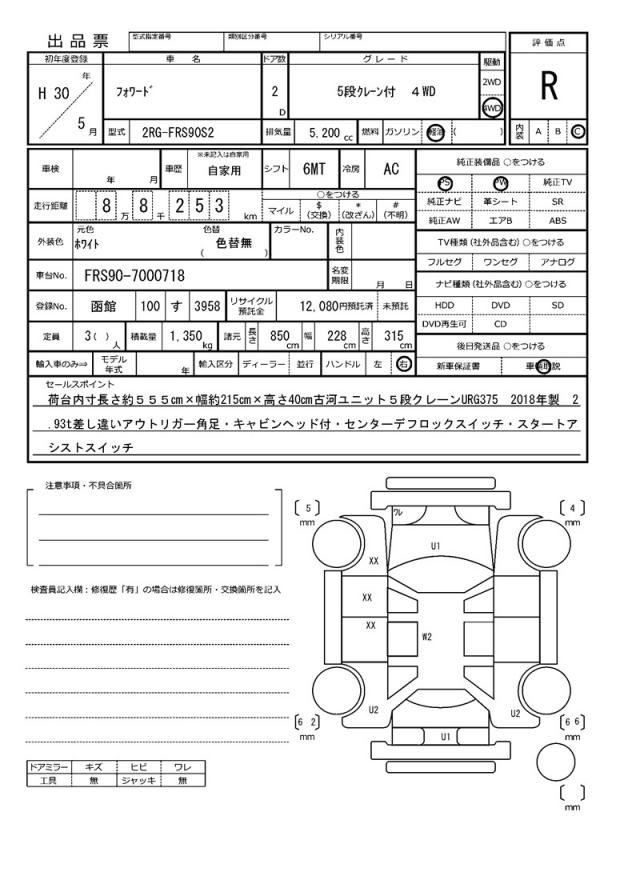 出品票 型式指定番号 類別区分番号 シリアル番号
評価点
R
内装 A B C
初年度登録 車名 ドア数 グレード 駆動
H 30 年 5 月
フォワード
2 D
5段クレーン付 4WD
2WD
4WD
型式 2RG-FRS90S2 排気量 5,200 cc 燃料 ガソリン 軽油 ( )
車検 年 月 車歴 ※未記入は自家用 自家用 シフト 6MT 冷房 AC
走行距離 8 万 8 千 2 5 3 km
○をつける
マイル $(交換) *(改ざん) #(不明)
外装色 元色 ホワイト 色替 色替無 ( ) カラーNo. 内装色
車台No. FRS90-7000718 名変期限 月 日
登録No. 函館 100 す 3958 リサイクル預託金 12,080円預託済 未預託
定員 3( )人 積載量 1,350 kg 諸元 長さ 850 cm 幅 228 cm 高さ 315 cm
輸入車のみ⇒ モデル年式 年 輸入区分 ディーラー 並行 ハンドル 左 右
純正装備品 ○をつける
PS PW 純正TV
純正ナビ 革シート SR
純正AW エアB ABS
TV種類 (社外品含む) ○をつける
フルセグ ワンセグ アナログ
ナビ種類 (社外品含む) ○をつける
HDD DVD SD
DVD再生可 CD
後日発送品 ○をつける
新車保証書 車輌取説
セールスポイント
荷台内寸長さ約555cm×幅約215cm×高さ40cm古河ユニット5段クレーンURG375 2018年製 2
.93t差し違いアウトリガー角足・キャビンヘッド付・センターデフロックスイッチ・スタートア
シストスイッチ
注意事項・不具合箇所
検査員記入欄：修復歴「有」の場合は修復箇所・交換箇所を記入
ドアミラー キズ ヒビ ワレ
工具 無 ジャッキ 無
[ 5 ] mm
[ 4 ] mm
ワレ
U1
XX
XX
XX
W2
U2
U2
U1
[ 6 2 ] mm
[ 6 6 ] mm
[ ] mm